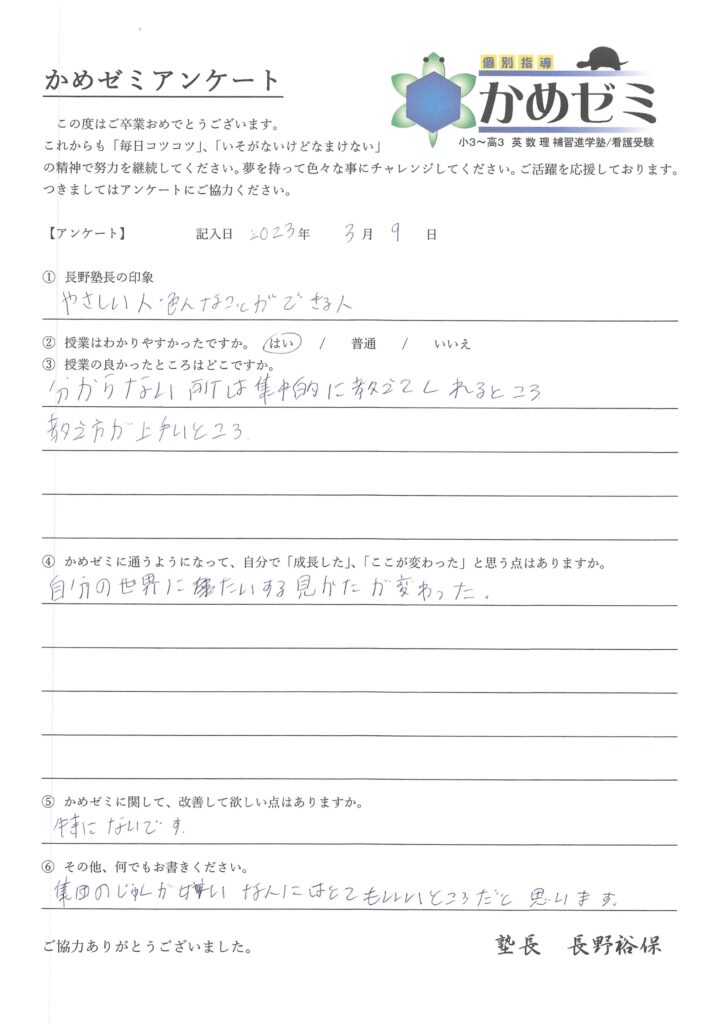 かめゼミアンケート
個別指導
かめゼミ
小3～高3 英 数 理 補習進学塾/看護受験
この度はご卒業おめでとうございます。
これからも「毎日コツコツ」、「いそがないけどなまけない」
の精神で努力を継続してください。夢を持って色々な事にチャレンジしてください。ご活躍を応援しております。
つきましてはアンケートにご協力ください。
【アンケート】 記入日 2023年 3月 9日
① 長野塾長の印象
やさしい人・色んなことができる人
② 授業はわかりやすかったですか。 はい / 普通 / いいえ
③ 授業の良かったところはどこですか。
分からない所は集中的に教えてくれるところ
教え方が上手いところ.
④ かめゼミに通うようになって、自分で「成長した」、「ここが変わった」と思う点はありますか。
自分の世界に たいする見かたが変わった。
⑤ かめゼミに関して、改善して欲しい点はありますか。
特にないです.
⑥ その他、何でもお書きください。
集団のじゅくが嫌いな人にはとてもいいところだと思います。
ご協力ありがとうございました。
塾長 長野裕保